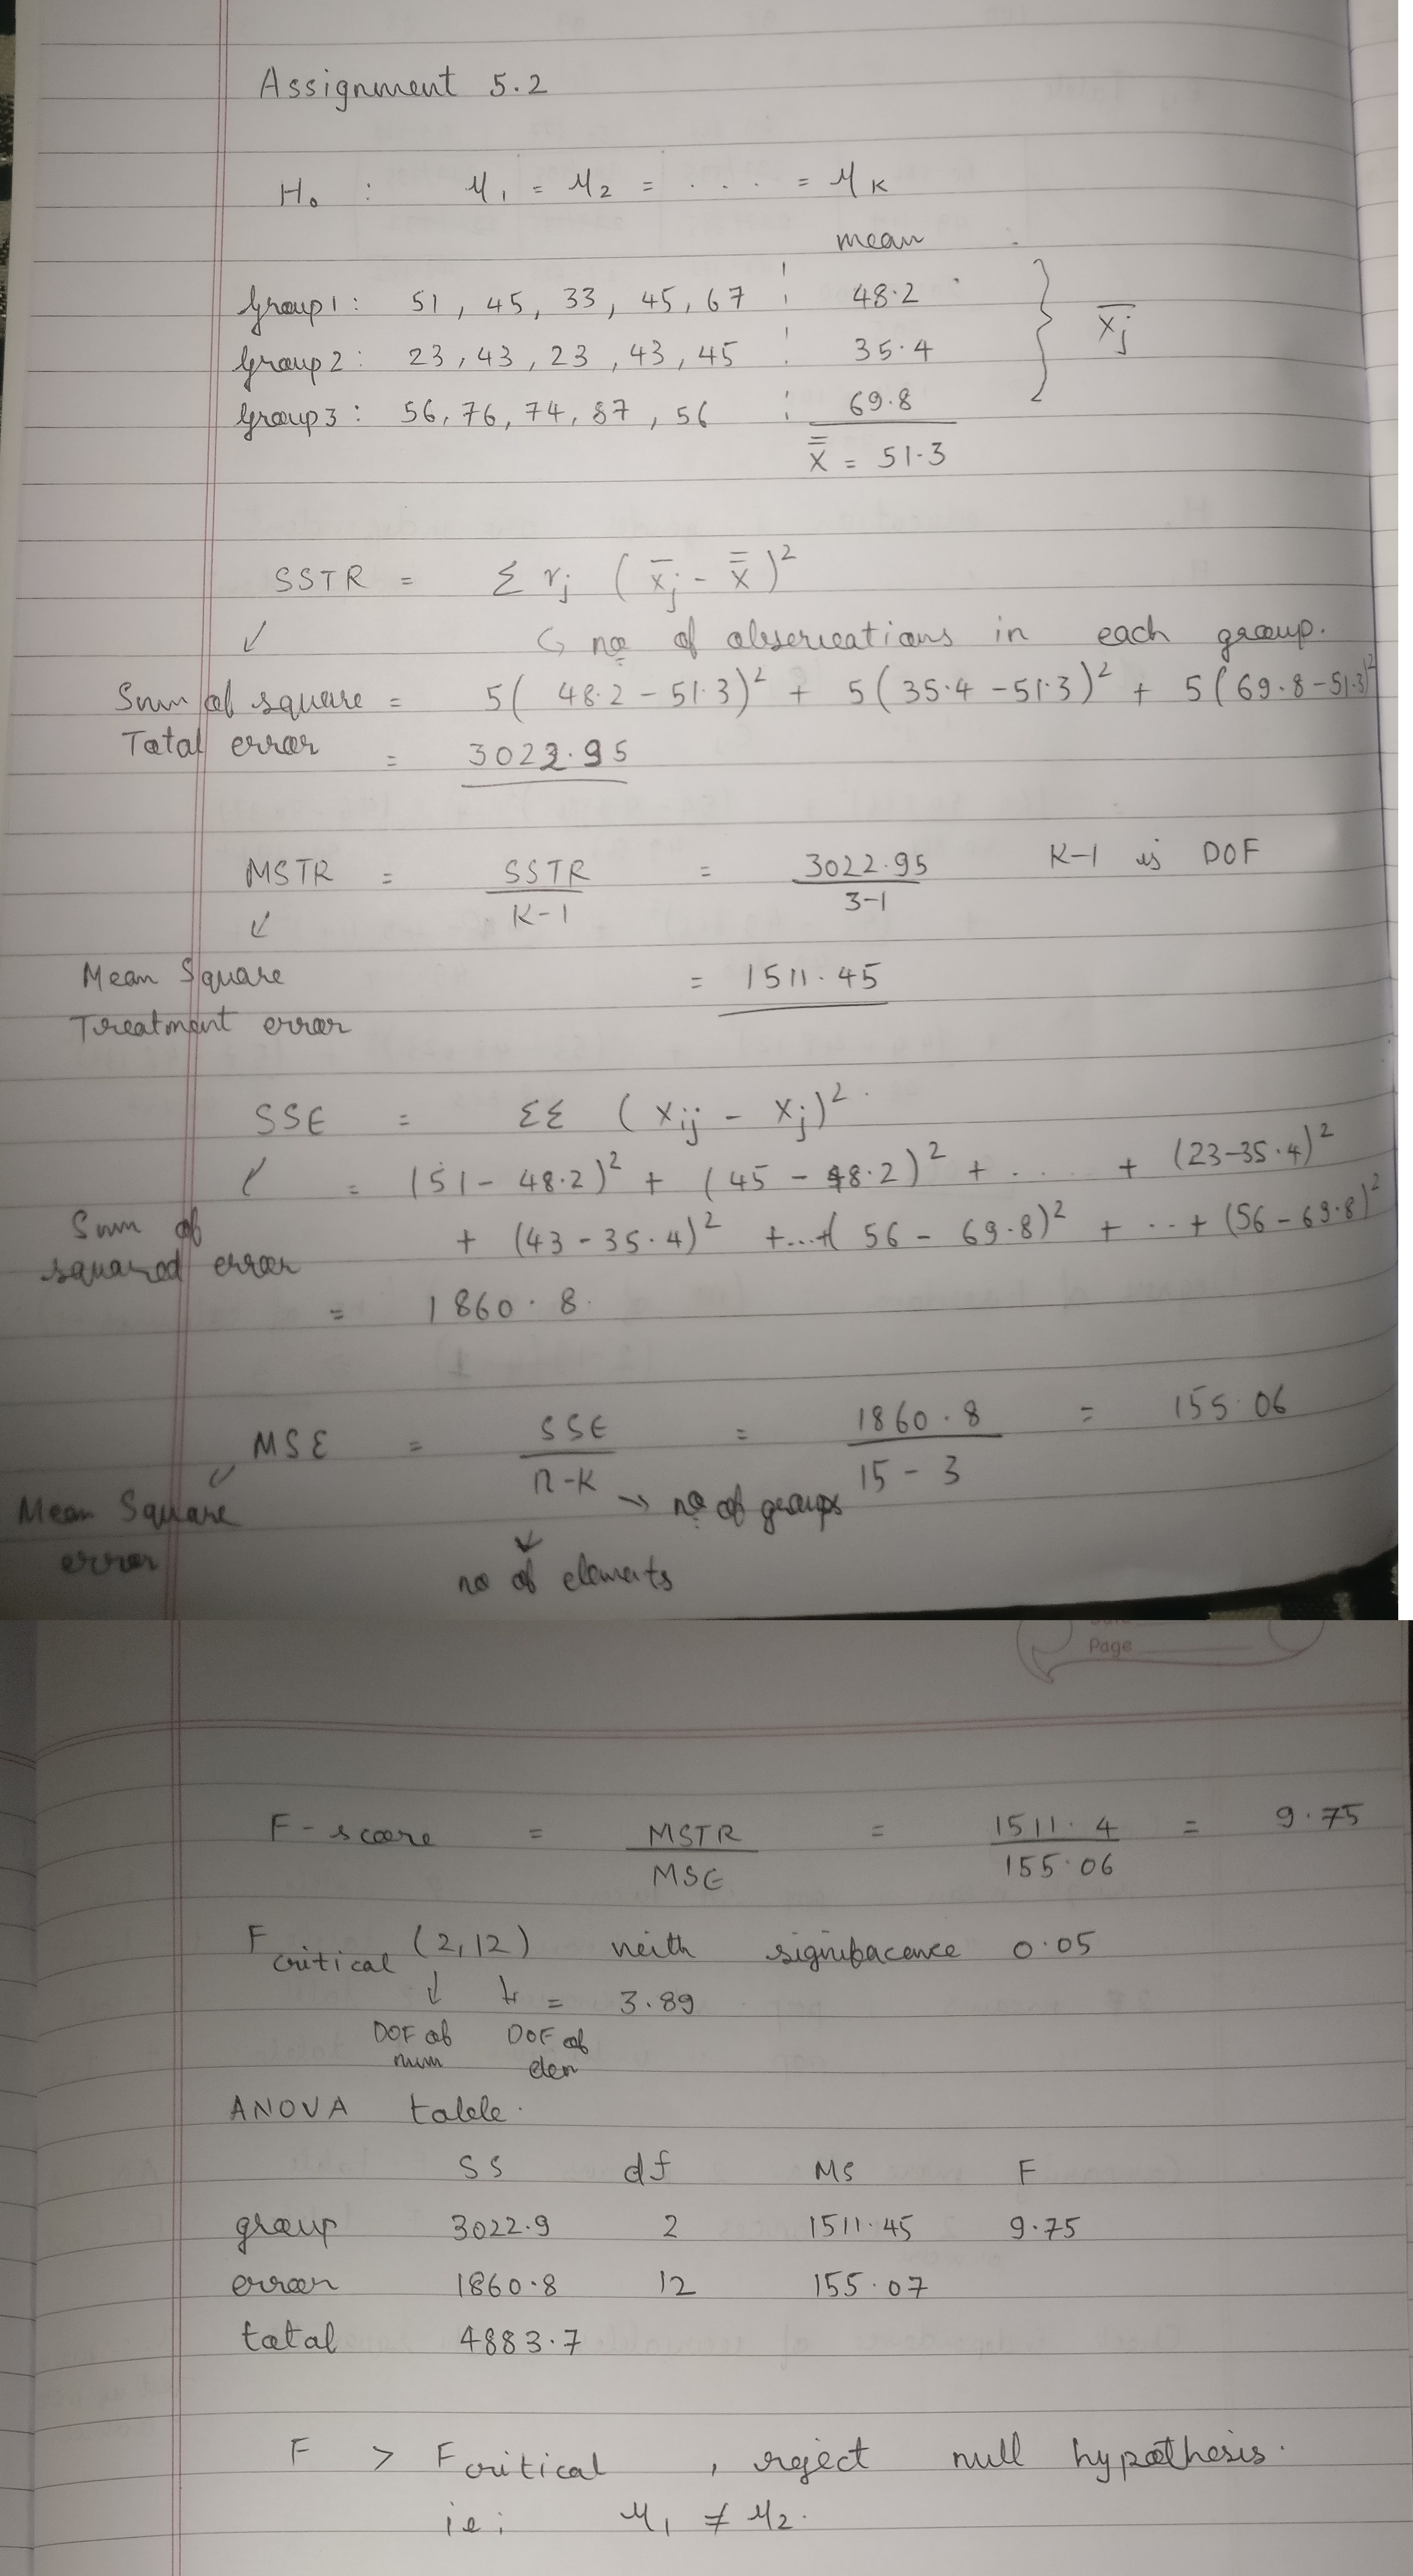 Assignment 5.2
H₀ : μ₁ = μ₂ = . . . . = μ_K
mean
Group 1 : 51, 45, 33, 45, 67 ¦ 48.2
Group 2 : 23, 43, 23, 43, 45 ¦ 35.4 } x̄j
Group 3 : 56, 76, 74, 87, 56 ¦ 69.8
x̿ = 51.3
SSTR = Σ rj (x̄j - x̿)²
↙ ↳ no of observations in each group.
Sum of square = 5(48.2 - 51.3)² + 5(35.4 - 51.3)² + 5(69.8 - 51.3)²
Total error = 3022.95
MSTR = SSTR / K-1 = 3022.95 / 3-1 K-1 is DOF
↙
Mean Square = 1511.45
Treatment error
SSE = ΣΣ (xij - xj)²
↙ = (51 - 48.2)² + (45 - 48.2)² + . . . . + (23-35.4)²
Sum of + (43 - 35.4)² + ...+( 56 - 69.8)² + ... + (56 - 69.8)²
squared error
= 1860.8
MSE = SSE / n-K = 1860.8 / 15 - 3 = 155.06
↙ → no of groups
Mean Square ↓
error no of elements
Page
F-score = MSTR / MSE = 1511.4 / 155.06 = 9.75
F critical (2,12) with signifacence 0.05
↓ ↳ = 3.89
DOF of DOF of
num den
ANOVA table.
SS df MS F
group 3022.9 2 1511.45 9.75
error 1860.8 12 155.07
total 4883.7
F > F critical , reject null hypothesis.
ie; μ₁ ≠ μ₂.